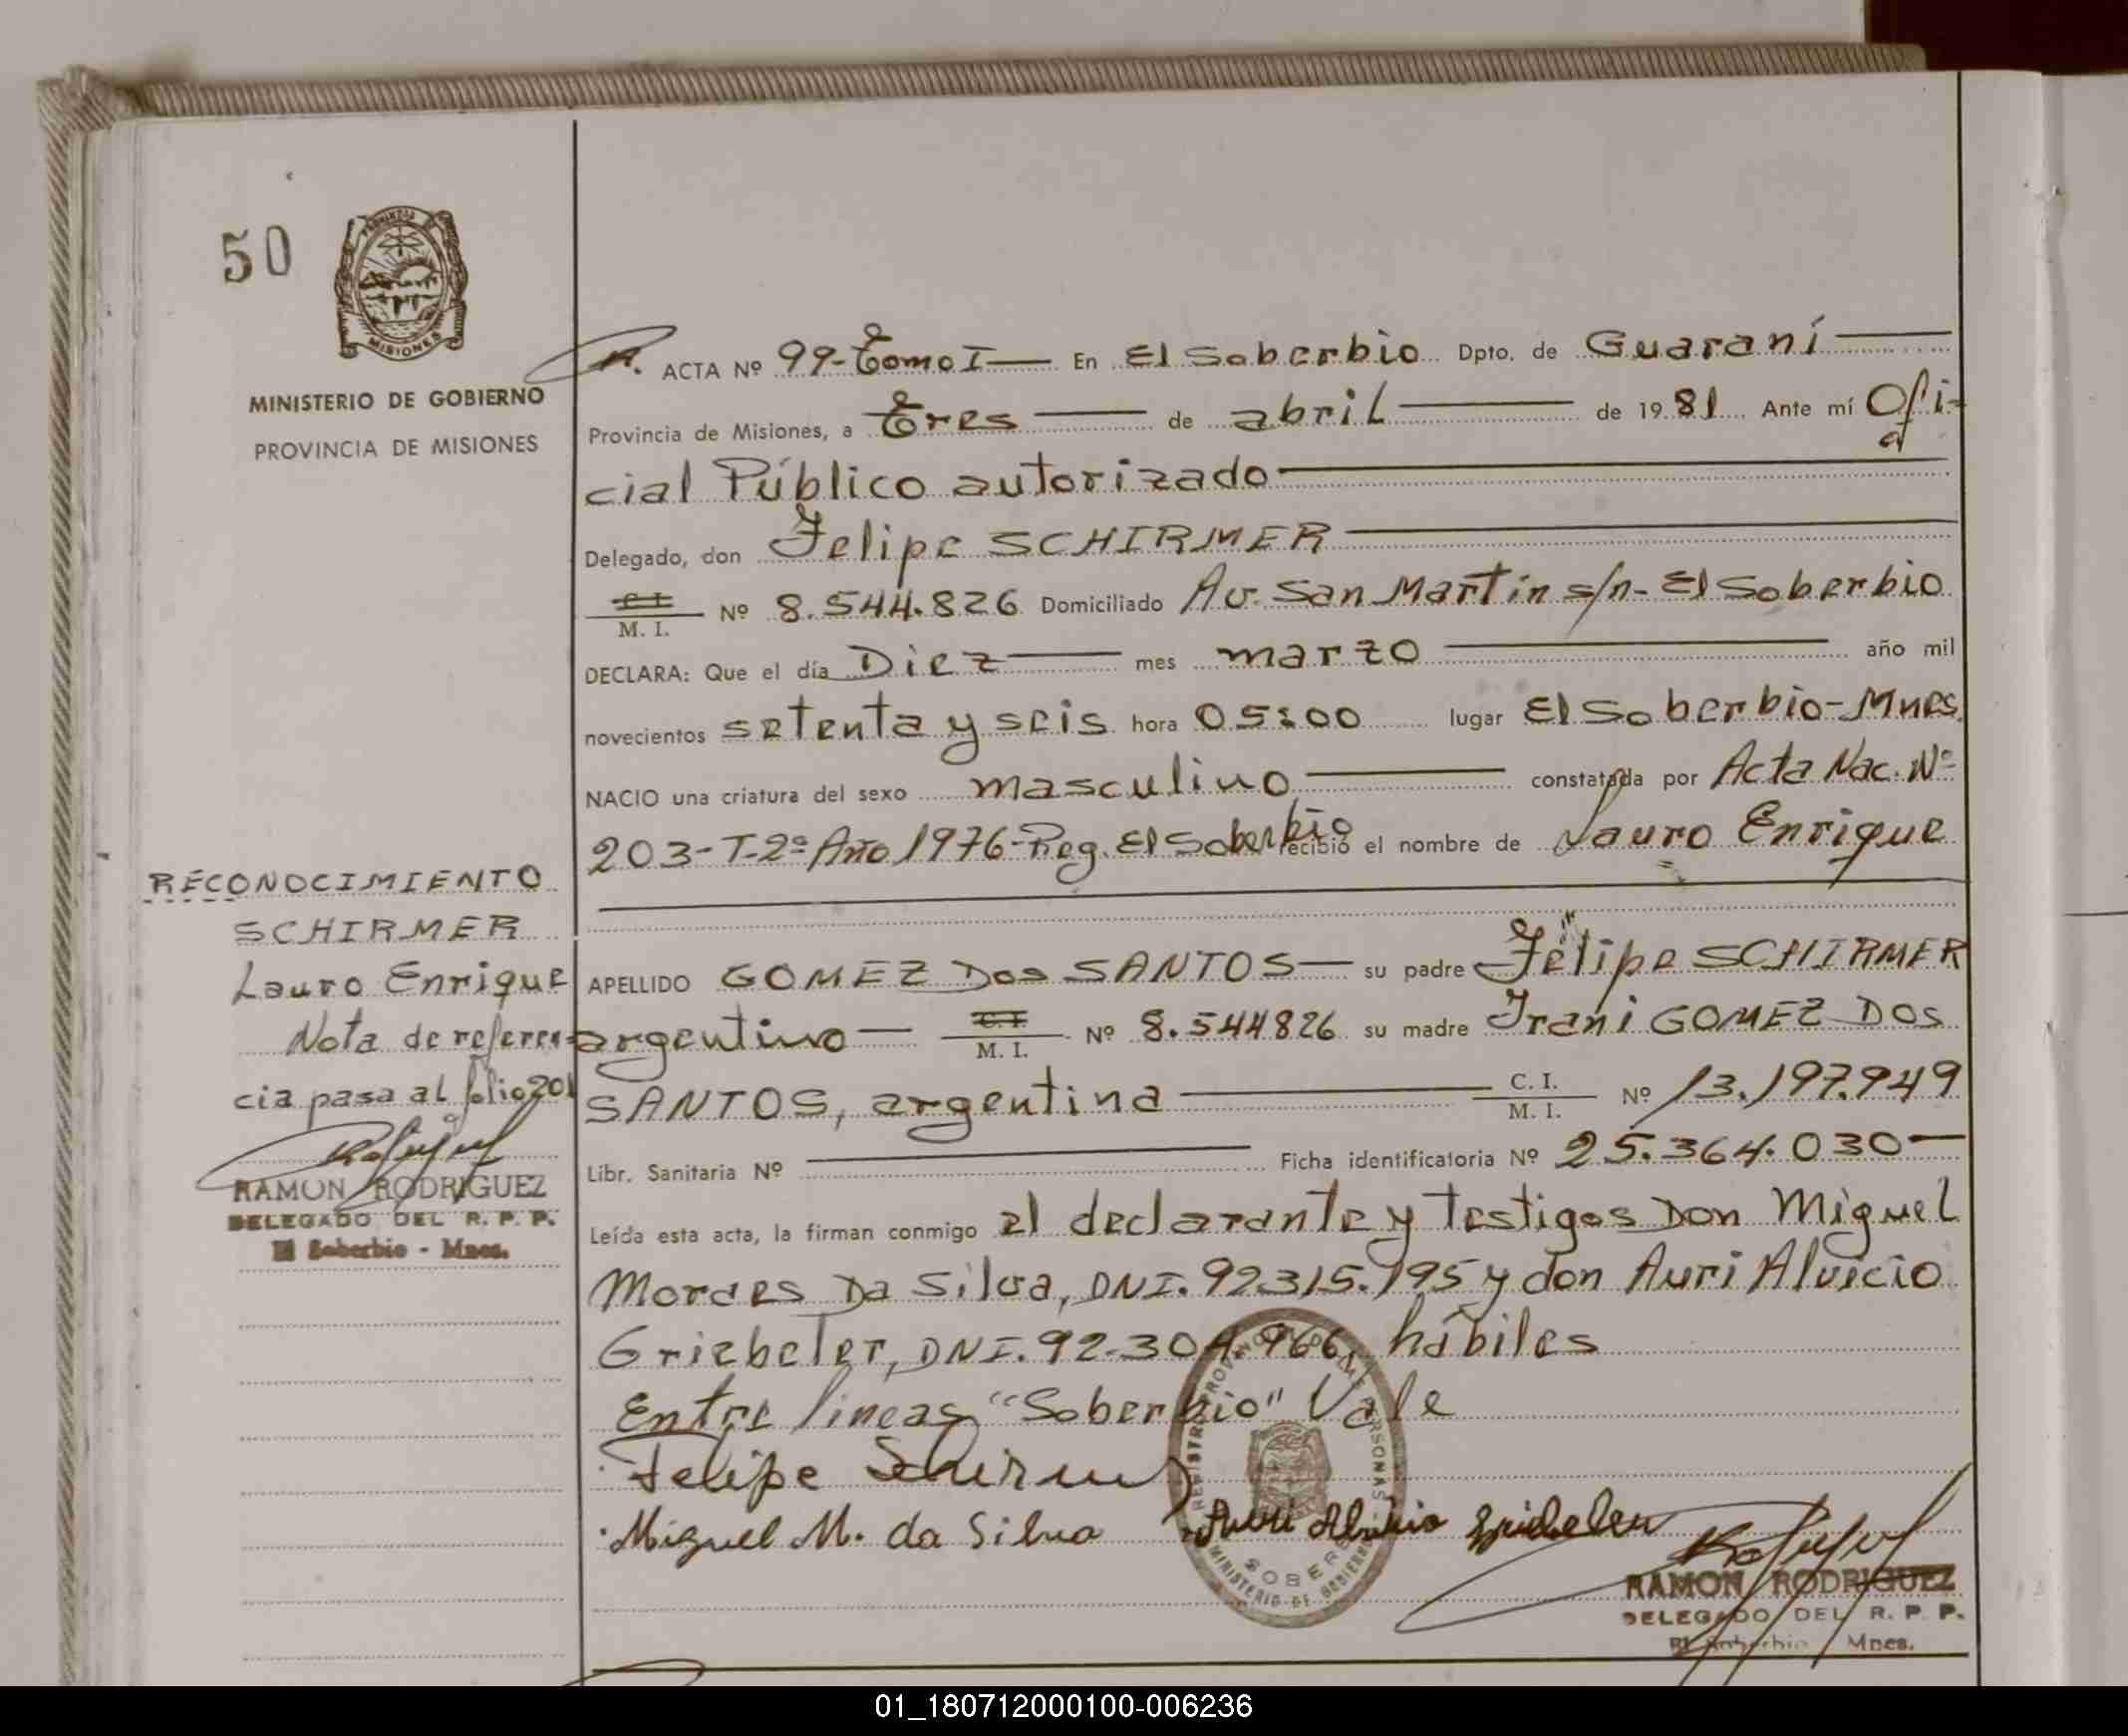 50
MISIONES
MINISTERIO DE GOBIERNO
PROVINCIA DE MISIONES
RECONOCIMIENTO
SCHIRMER
Lauro Enrique
Nota de referen-
cia pasa al folio 201
RAMON RODRIGUEZ
DELEGADO DEL R. P. P.
El Soberbio - Mnes.
R. ACTA Nº 99-Tomo I— En El Soberbio Dpto. de Guaraní
Provincia de Misiones, a Tres de abril de 1981 Ante mí Ofi-
cial Público autorizado
Delegado, don Felipe SCHIRMER
C. I. / M. I. Nº 8.544.826 Domiciliado Av. San Martín s/n- El Soberbio
DECLARA: Que el día Diez mes marzo año mil
novecientos setenta y seis hora 05:00 lugar El Soberbio-Mnes.
NACIO una criatura del sexo masculino constatada por Acta Nac. Nº
203-T-2º Año 1976-Reg. El Soberbio recibió el nombre de Lauro Enrique
APELLIDO GOMEZ Dos SANTOS— su padre Felipe SCHIRMER
argentino— C. I. / M. I. Nº 8.544826 su madre Irani GOMEZ DOS
SANTOS, argentina C. I. / M. I. Nº 13.197.949
Libr. Sanitaria Nº Ficha identificatoria Nº 25.364.030—
Leída esta acta, la firman conmigo el declarante y testigos Don Miguel
Moraes Da Silva, DNI. 92315.195 y don Auri Alvicio
Griebeler, DNI. 92.304.966, hábiles
Entre lineas "Soberbio" Vale
Felipe Schirmer
Miguel M. da Silva Auri Alvicio Griebeler
REGISTRO PROVINCIAL DE LAS PERSONAS
SOBERBIO
MINISTERIO DE GOBIERNO
RAMON RODRIGUEZ
DELEGADO DEL R. P. P.
El Soberbio Mnes.
01_180712000100-006236